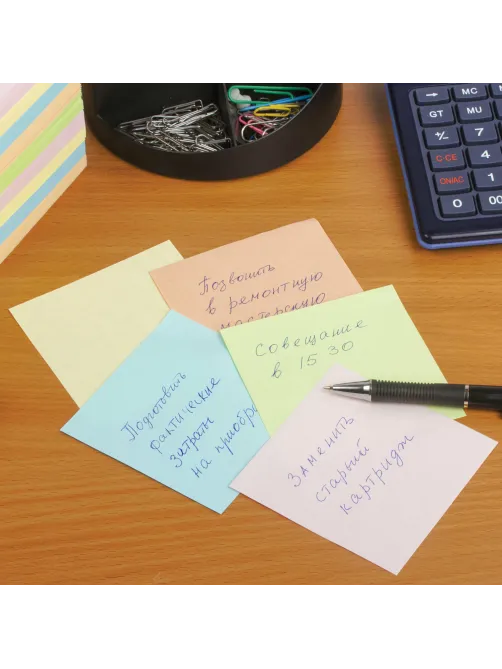 Позвонить
в ремонтную
мастерскую
Совещание
в 15 30
Подготовить
фактические
затраты
на приобр
Заменить
старый
картридж
→ MC
GT MV
+/- 7
C·CE 4
ON/AC 1
0 00